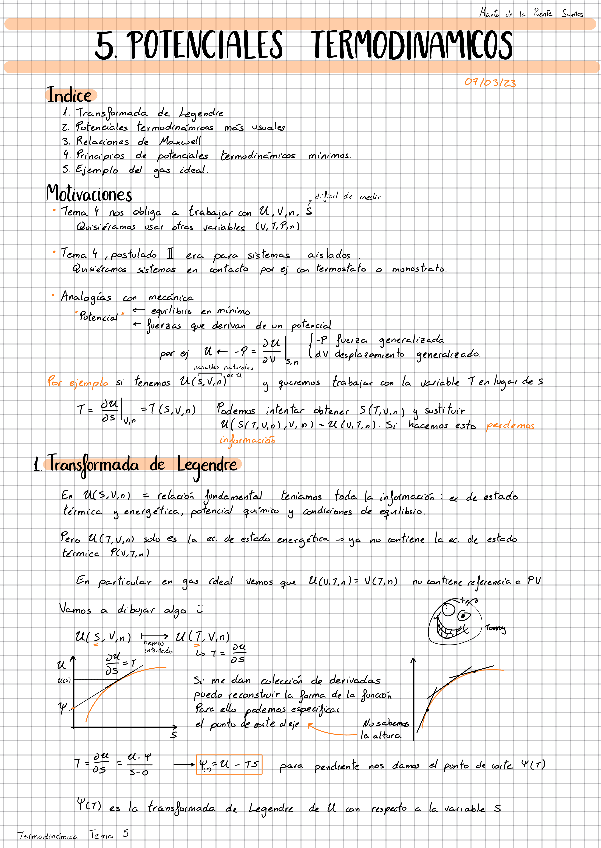 Marta de la Puente Santos
5. POTENCIALES TERMODINAMICOS
07/03/23
Indice
1. Transformada de Legendre
2. Potenciales termodinámicos más usuales
3. Relaciones de Maxwell
4. Principios de potenciales termodinámicos mínimos.
5. Ejemplo del gas ideal.
Motivaciones
difícil de medir
• Tema 4 nos obliga a trabajar con U, V, n, S
Quisiéramos usar otras variables (V, T, P, n)
• Tema 4, postulado II era para sistemas aislados.
Quisiéramos sistemas en contacto por ej con termostato o monostrato
• Analogías con mecánica
"Potencial" ← equilibrio en mínimo
← fuerzas que derivan de un potencial
por ej U ← -P = ∂U/∂V |S,n { -P fuerza generalizada
dV desplazamiento generalizado
variables naturales de U
Por ejemplo si tenemos U(S,V,n) y queremos trabajar con la variable T en lugar de S
T = ∂U/∂S |V,n = T(S,V,n) Podemos intentar obtener S(T,V,n) y sustituir
U(S(T,V,n),V,n) = U(V,T,n). Si hacemos esto perdemos
información
1. Transformada de Legendre
En U(S,V,n) = relación fundamental teníamos toda la información: ec de estado
térmica y energética, potencial químico y condiciones de equilibrio.
Pero U(T,V,n) solo es la ec. de estado energética → ya no contiene la ec. de estado
térmica P(V,T,n)
En particular en gas ideal vemos que U(V,T,n) = U(T,n) no contiene referencia a PV
Vamos a dibujar algo :
Tommy
U(S,V,n) ⟼ U(T,V,n)
hemos intentado
↳ T = ∂U/∂S
U
∂U/∂S = T
Ψ
S
Si me dan colección de derivadas
puedo reconstruir la forma de la función
Para ello podemos especificar
el punto de corte al eje
No sabemos
la altura
T = ∂U/∂S = U-Ψ/S-0 → Ψ = U - TS para pendiente nos damos el punto de corte Ψ(T)
Ψ(T) es la transformada de Legendre de U con respecto a la variable S
Termodinámica Tema 5